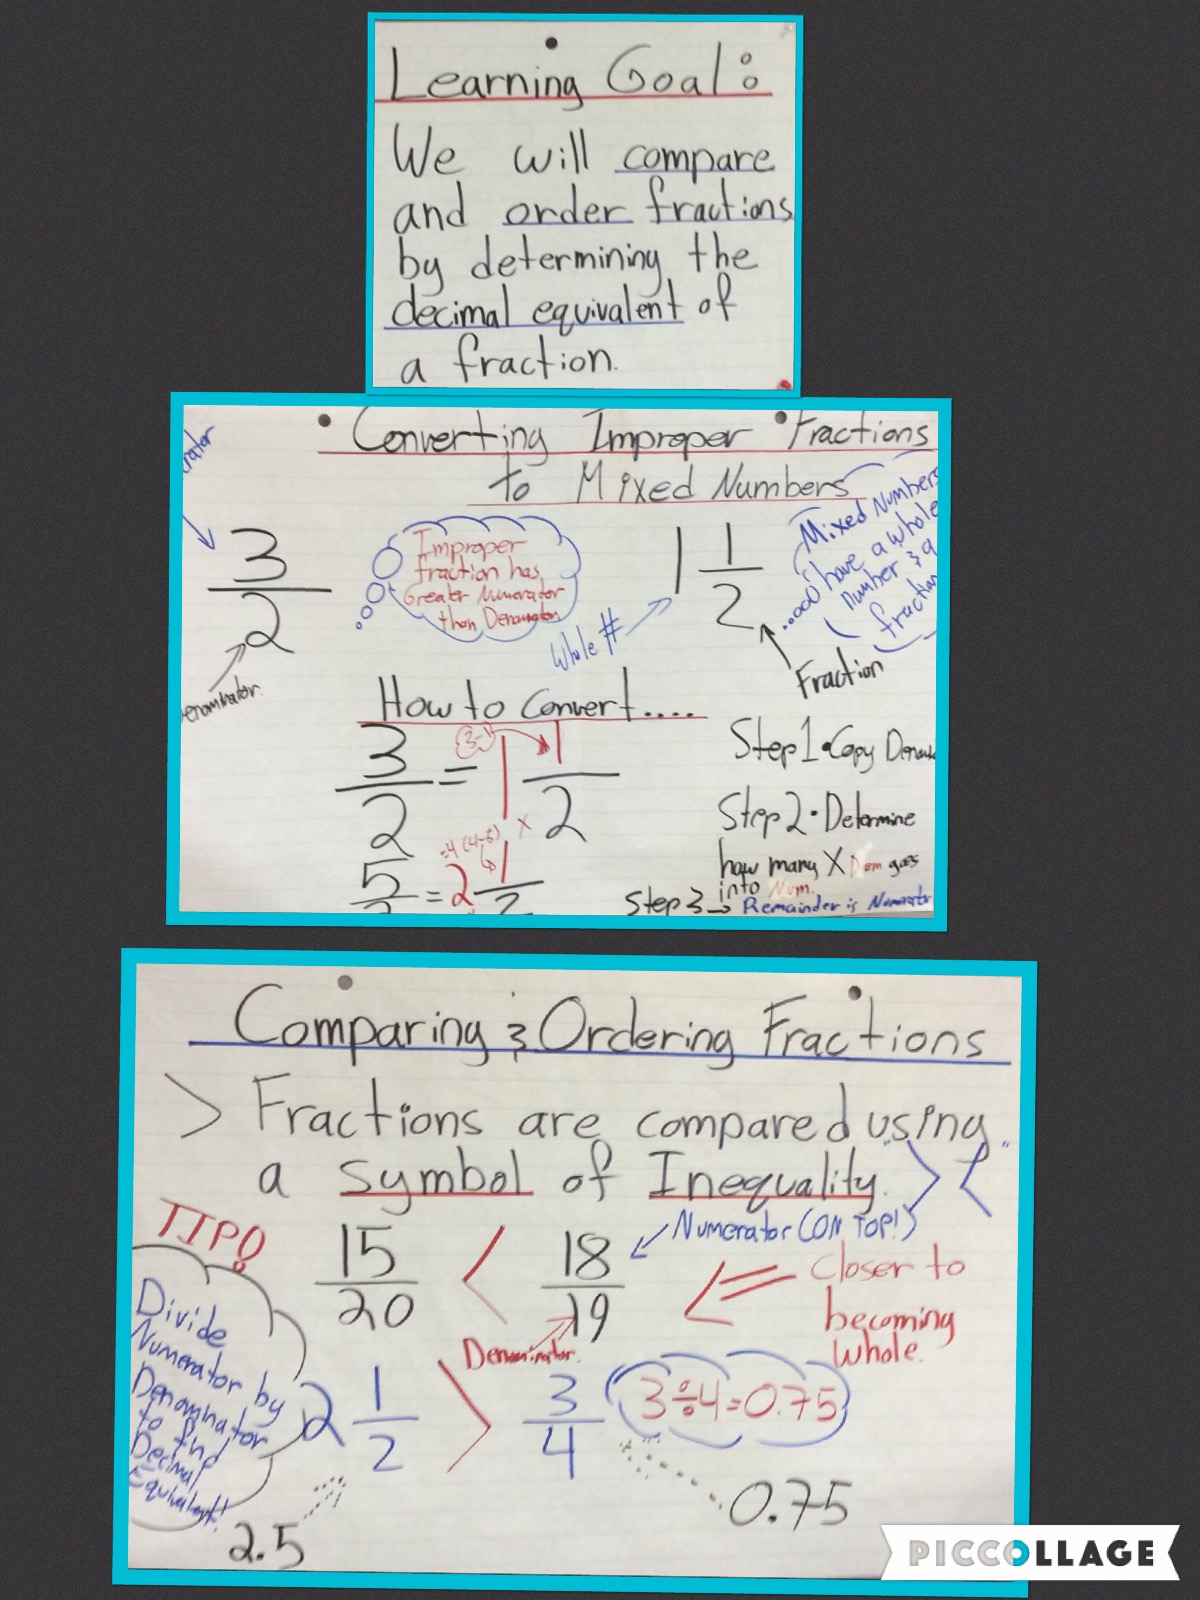 Learning Goal:
We will compare
and order fractions
by determining the
decimal equivalent of
a fraction.
Converting Improper Fractions
to Mixed Numbers
rator
3
2
enominator
Improper
fraction has
Greater Numerator
than Denominator
1 1
2
Whole #
Fraction
Mixed Numbers
have a whole
number & a
fraction
How to Convert....
3/2 = 1 1/2
(3-
5/2 = 2 1/2
Step 1 • Copy Denom
Step 2 • Determine
how many X Dem goes
into Num.
Step 3 → Remainder is Numerator
Comparing & Ordering Fractions
> Fractions are compared using
a symbol of Inequality. "> <"
TIP!
Divide
Numerator by
Denominator
to find
Decimal
Equivalent!
15/20 < 18/19
Numerator (ON TOP!)
Denominator
Closer to
becoming
whole.
2 1/2 > 3/4
3÷4=0.75
2.5
0.75
PICCOLLAGE